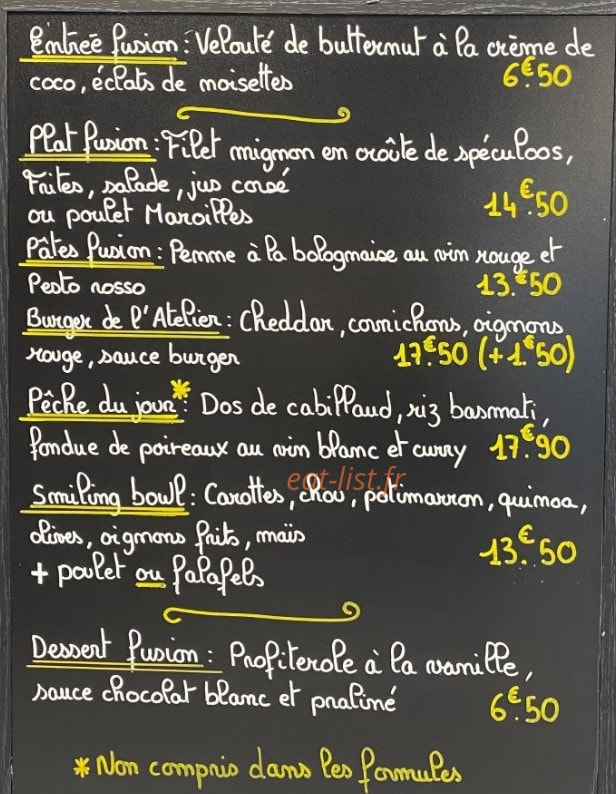 Entrée fusion : Velouté de butternut à la crème de
coco, éclats de noisettes 6€.50
Plat fusion : Filet mignon en croûte de spéculoos,
Frites, salade, jus corsé
ou poulet Maroilles 14€.50
Pâtes fusion : Penne à la bolognaise au vin rouge et
Pesto rosso 13.€50
Burger de l'Atelier : Cheddar, cornichons, oignons
rouge, sauce burger 17€.50 (+1.€50)
Pêche du jour* : Dos de cabillaud, riz basmati,
fondue de poireaux au vin blanc et curry 17.€90
eat-list.fr
Smiling bowl : Carottes, chou, potimarron, quinoa,
olives, oignons frits, maïs
+ poulet ou falafels 13.€50
Dessert fusion : Profiterole à la vanille,
sauce chocolat blanc et praliné 6€.50
* Non compris dans les formules